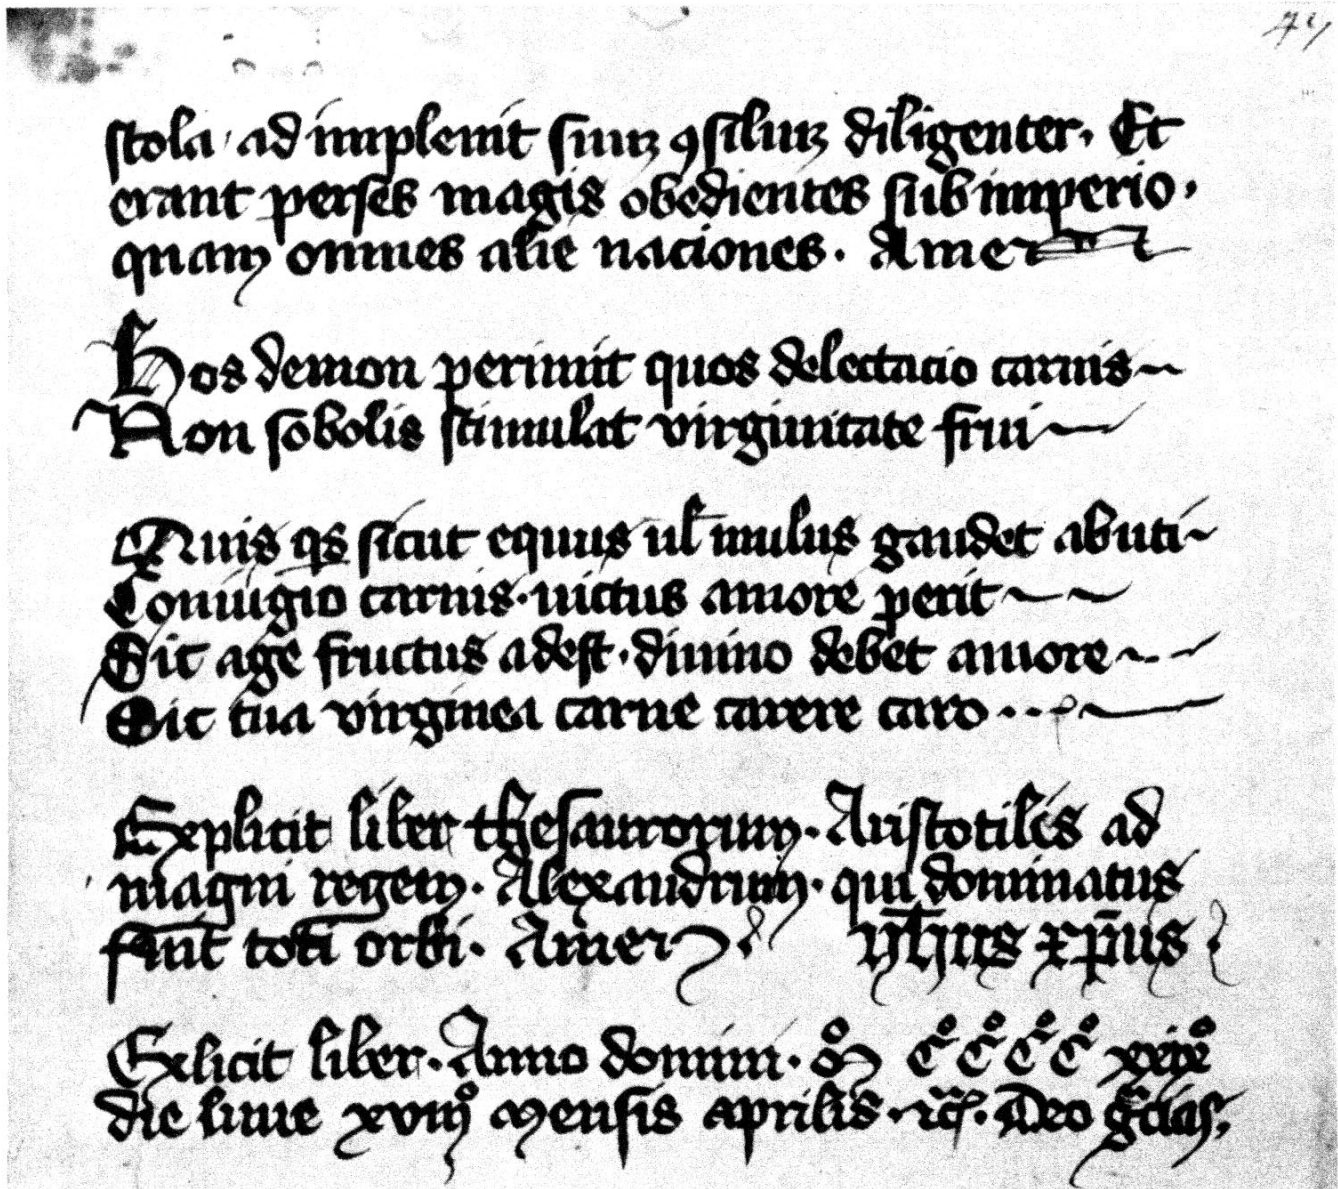 stola ad implenit suuꝫ ꝯsiliuꝫ diligenter. Et
erant perses magis obedientes sub imperio.
quam omnes alie naciones. Amen
Hos demon perimit quos delectacio carnis
Non sobolis stimulat virginitate frui
Quis qs sicut equus ul mulus gaudet abuti
Coniugio carnis. uictus amore perit
Sit age fructus adest. diuino debet amore
Sic tua virginea carne carere caro
Explicit liber thesaurorum. Aristotilis ad
magni regem. Alexandrum. qui dominatus
fuit toti orbi. Amen yhus xp̄us
Exlicit liber. Anno domini. Mº Cº Cº Cº Cº xxixº
die lune xviijº mensis aprilis. Deo gr̄cias.